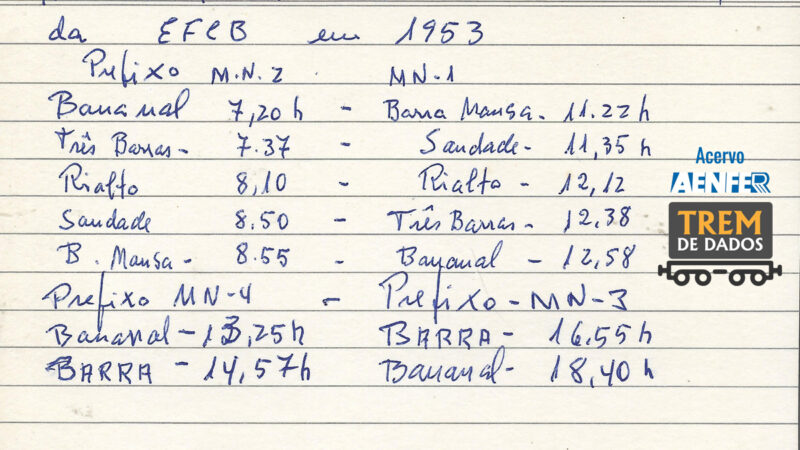 da EFCB em 1953
Prefixo M.N. 2 MN-1
Bananal 7,20h - Barra Mansa - 11.22h
Três Barras - 7.37 - Saudade - 11,35 h
Rialto 8,10 - Rialto - 12,12
Saudade 8.50 - Três Barras - 12,38
B. Mansa - 8.55 - Bananal - 12,58
Prefixo MN-4 - Prefixo - MN-3
Bananal - 13,25h BARRA - 16,55h
BARRA - 14,57h Bananal - 18,40h
Acervo
AENFER
TREM
DE DADOS